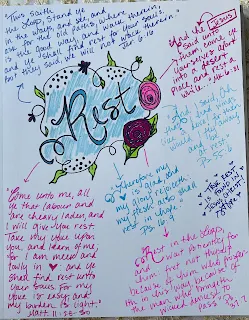 This saith
the Lord, Stand ye
in the ways, and see, and
ask for the old paths, where
is the good way, and walk therein,
and ye shall find rest for your souls.
But they said, we will not walk therein.
Jer 6:16
And he
(JESUS)
said unto
them, come ye
yourselves apart
into a desert
place, and rest a
while.
Rest
And I said, oh
that I had wings
like a dove! for then
would I fly away
and be at
rest.
Therefore my
♡ is glad and
my glory rejoiceth;
my flesh also shall
rest in hope.
Ps.
"Come unto me, all
ye that labour and
are heavy laden, and
I will give you rest.
Take my yoke upon
you, and learn of me;
for I am meek and
lowly in ♡: and ye
shall find rest unto
your souls. For my
yoke is easy, and
my burden is light."
Matt. 11:28-30
Rest in the Lord,
and wait patiently for
him: fret not thyself
because of him who prospereth
in his way, because of
the man who bringeth
wicked devices to
pass.